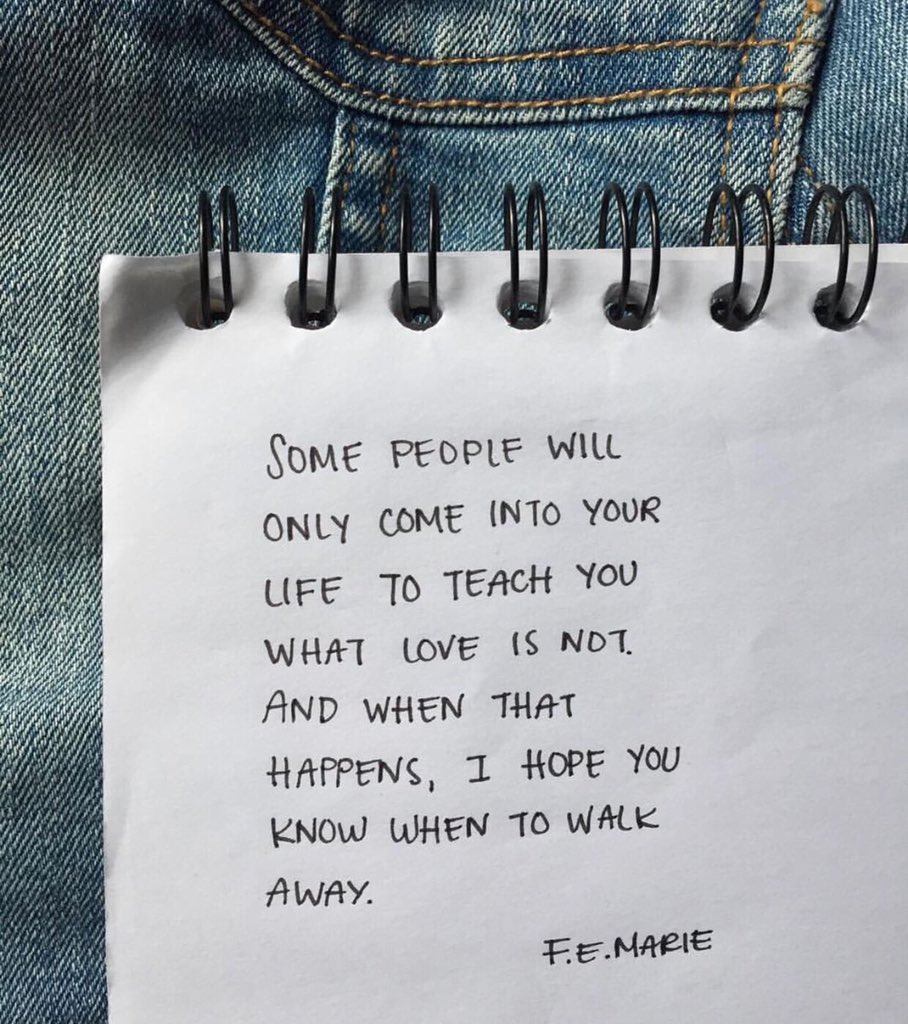 SOME PEOPLE WILL
ONLY COME INTO YOUR
LIFE TO TEACH YOU
WHAT LOVE IS NOT.
AND WHEN THAT
HAPPENS, I HOPE YOU
KNOW WHEN TO WALK
AWAY.
F.E.MARIE